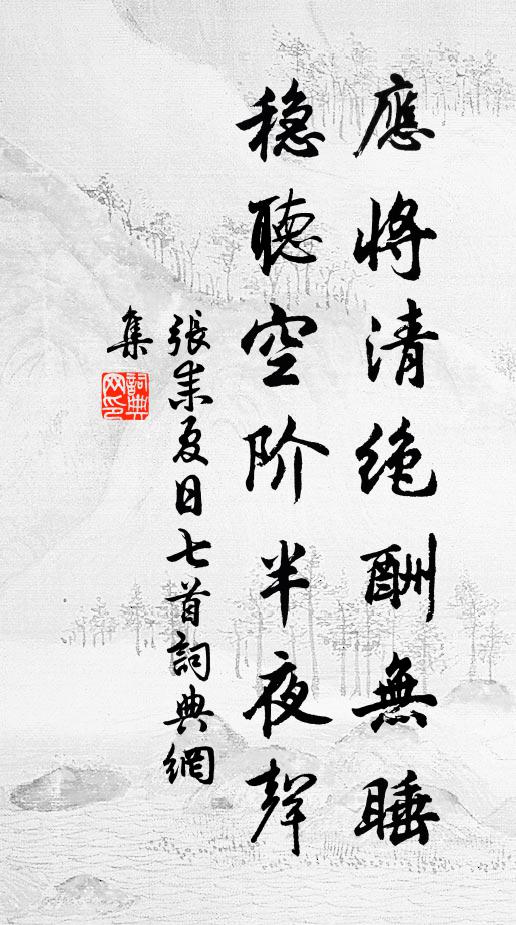 應将清絶酬無睡
穏聽空阶半夜聲
張耒夏日七首詞典網
集
詞典
网印